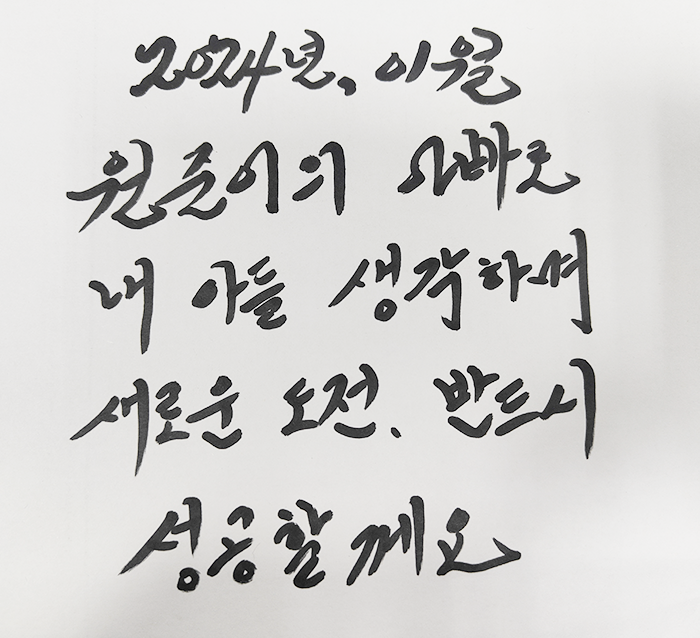 2024년, 이월
원준이의 아빠로
내 아들 생각하며
새로운 도전. 반드시
성공할께요